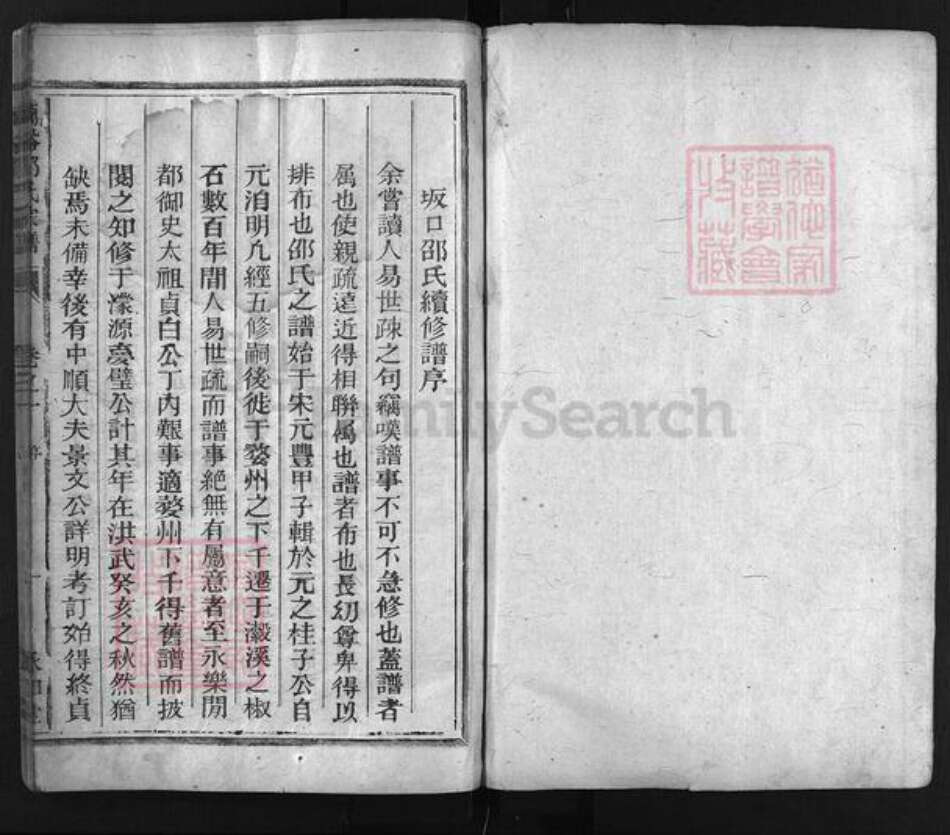 坂口邵氏續修譜序
余嘗讀人易世疎之句竊嘆譜事不可不急修也蓋譜者
属也使親疏遠近得相聯属也譜者布也長幼尊卑得以
排布也邵氏之譜始于宋元豐甲子輯於元之桂子公自
元洎明凢經五修嗣後徙于婺州之下千遷于瀫溪之椒
石數百年間人易世疏而譜事絕無有屬意者至永樂閒
都御史太祖貞白公丁內艱事適婺州下千得舊譜而披
閱之知修于濛源夌璧公計其年在洪武癸亥之秋然猶
缺焉未備幸後有中順大夫景文公詳明考訂始得終貞
邵氏宗譜
卷之一
序
一
FamilySearch
猶他家
譜學會
收藏